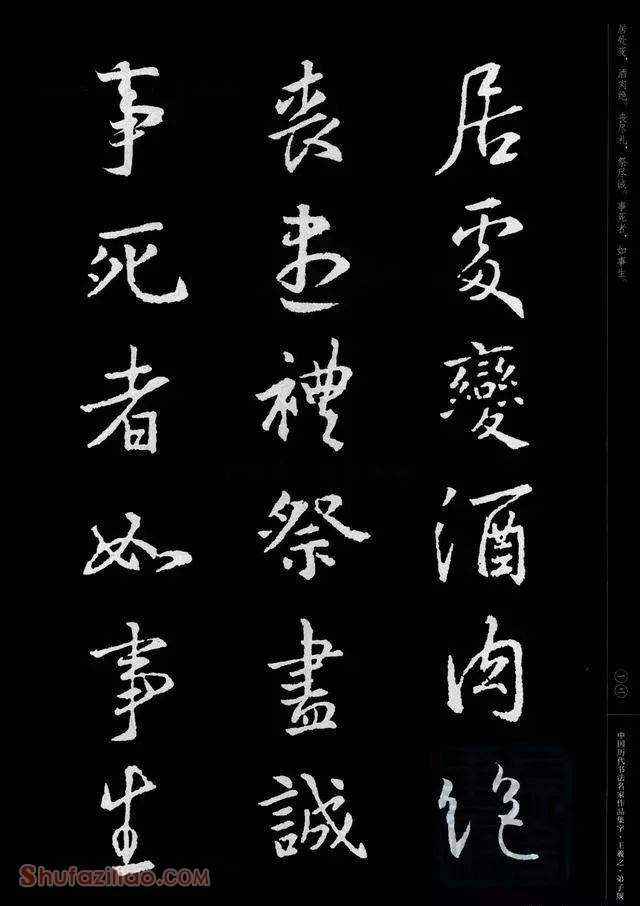 居处变，酒肉绝。丧尽礼，祭尽诚。事死者，如事生。
居處變酒肉絕
喪盡禮祭盡誠
事死者如事生
中国历代书法名家作品集字·王羲之·弟子规
Shufaziliao.com